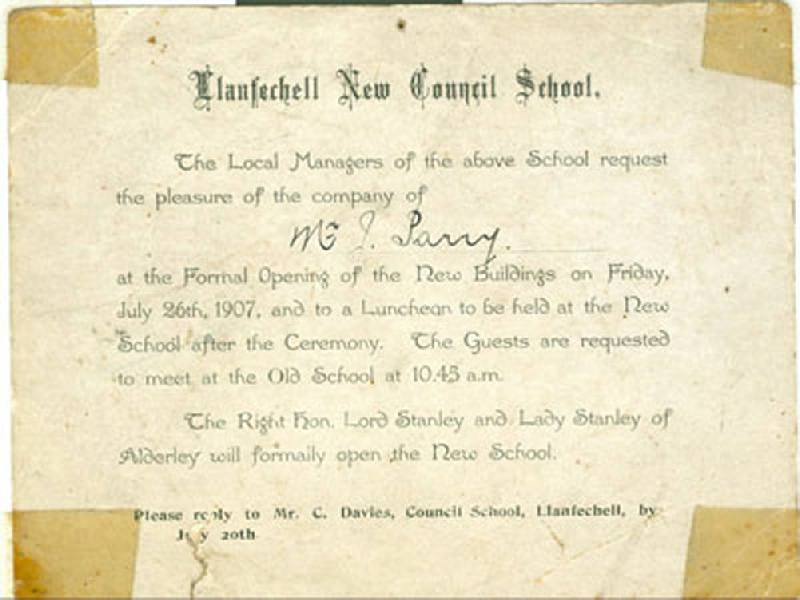 Llanfechell New Council School.
The Local Managers of the above School request
the pleasure of the company of
Mr J. Parry.
at the Formal Opening of the New Buildings on Friday,
July 26th, 1907, and to a Luncheon to be held at the New
School after the Ceremony. The Guests are requested
to meet at the Old School at 10.45 a.m.
The Right Hon. Lord Stanley and Lady Stanley of
Alderley will formally open the New School.
Please reply to Mr. C. Davies, Council School, Llanfechell, by
July 20th